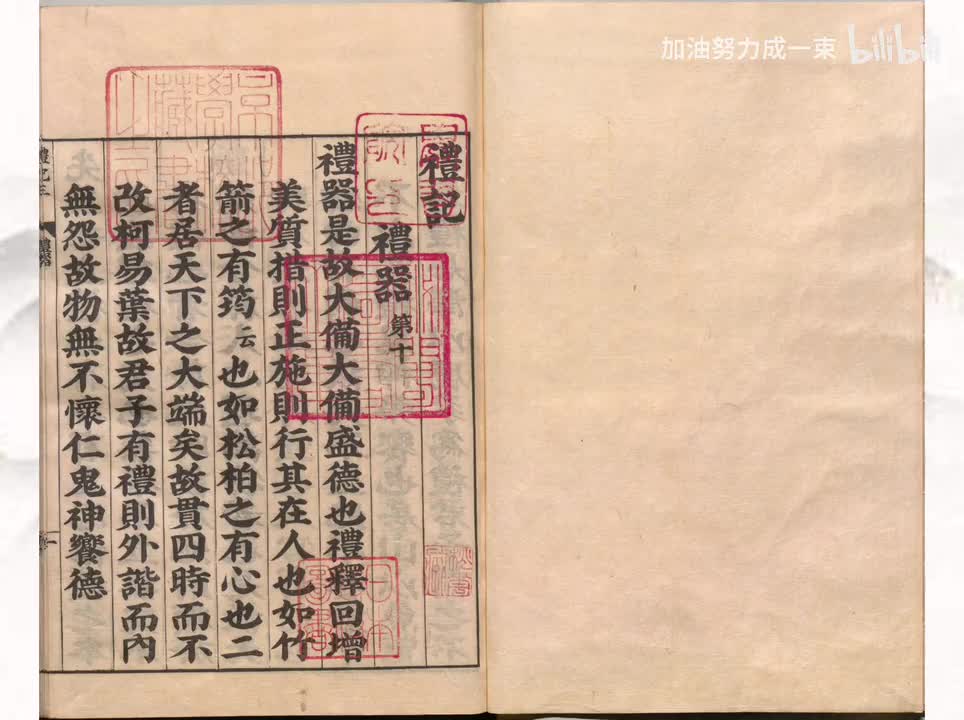 加油努力成一束 bilibili
禮記
禮器 第十
禮器是故大備大備盛德也禮釋回增
美質措則正施則行其在人也如竹
箭之有筠云也如松柏之有心也二
者居天下之大端矣故貫四時而不
改柯易葉故君子有禮則外諧而內
無怨故物無不懷仁鬼神饗德